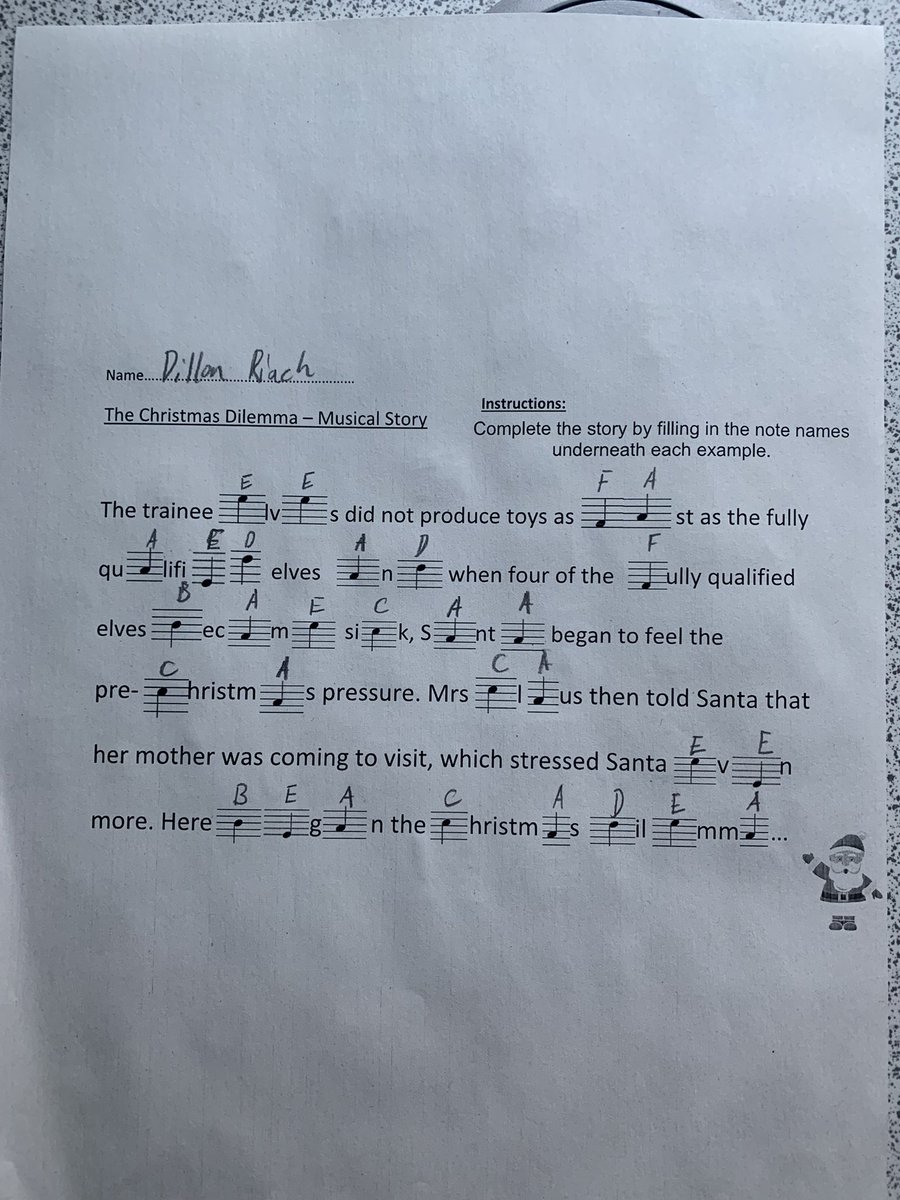 Name.....Dillon Riach.....
The Christmas Dilemma – Musical Story
Instructions:
Complete the story by filling in the note names
underneath each example.
E E F A
The trainee lv s did not produce toys as st as the fully
A E D A D F
qu lifi elves n when four of the ully qualified
B A E C A A
elves ec m si k, S nt began to feel the
C A C A
pre- hristm s pressure. Mrs l us then told Santa that
E E
her mother was coming to visit, which stressed Santa v n
B E A C A D E A
more. Here g n the hristm s il mm ...